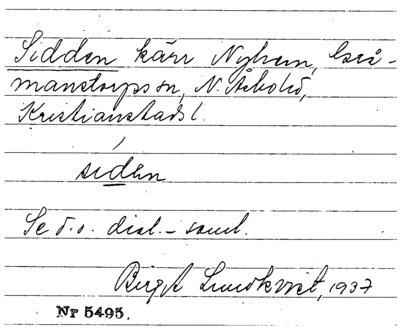 Sidden kärr Nyhem, Grå-
manstorpssn, N. Åsbohd,
Kristianstads l.
siden
Se d.o. dial.-saml.
Birgit Lundkvist, 1937
Nr 5495.